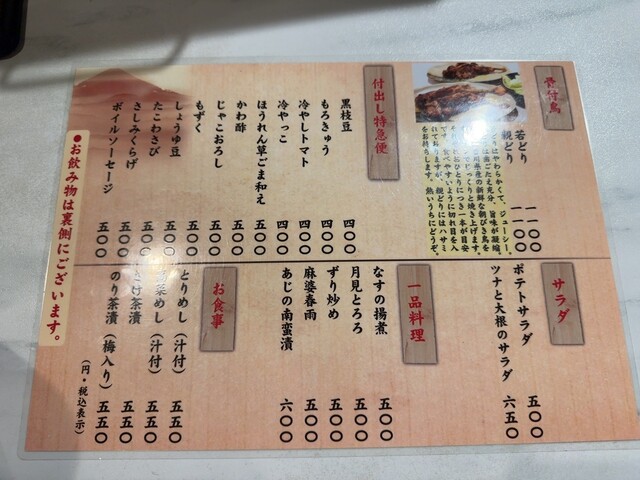 骨付鳥
若どり 一一〇〇
親どり 一一〇〇
どりはやわらかくて、ジューシー。
は歯ごたえ充分、旨味が凝縮。
川県産の新鮮な朝びき鳥を
でじっくりと焼き上げます。
おひとりにつき一本が目安
です。食べやすいように切れ目を入
れておりますが、親どりにはハサミ
をお持ちします。熱いうちにどうぞ。
付出し特急便
黒枝豆 四〇〇
もろきゅう 四〇〇
冷やしトマト 四〇〇
冷やっこ 四〇〇
ほうれん草ごま和え 五〇〇
かわ酢 五〇〇
じゃこおろし 五〇〇
もずく 五〇〇
しょうゆ豆 五〇〇
たこわさび 五〇〇
さしみくらげ 五〇〇
ボイルソーセージ 五〇〇
サラダ
ポテトサラダ 五〇〇
ツナと大根のサラダ 六五〇
一品料理
なすの揚煮 五〇〇
月見とろろ 五〇〇
ずり炒め 五〇〇
麻婆春雨 五〇〇
あじの南蛮漬 六〇〇
お食事
とりめし(汁付) 五五〇
菜めし(汁付) 五五〇
さけ茶漬 五五〇
のり茶漬(梅入り) 五五〇
(円・税込表示)
●お飲み物は裏側にございます。